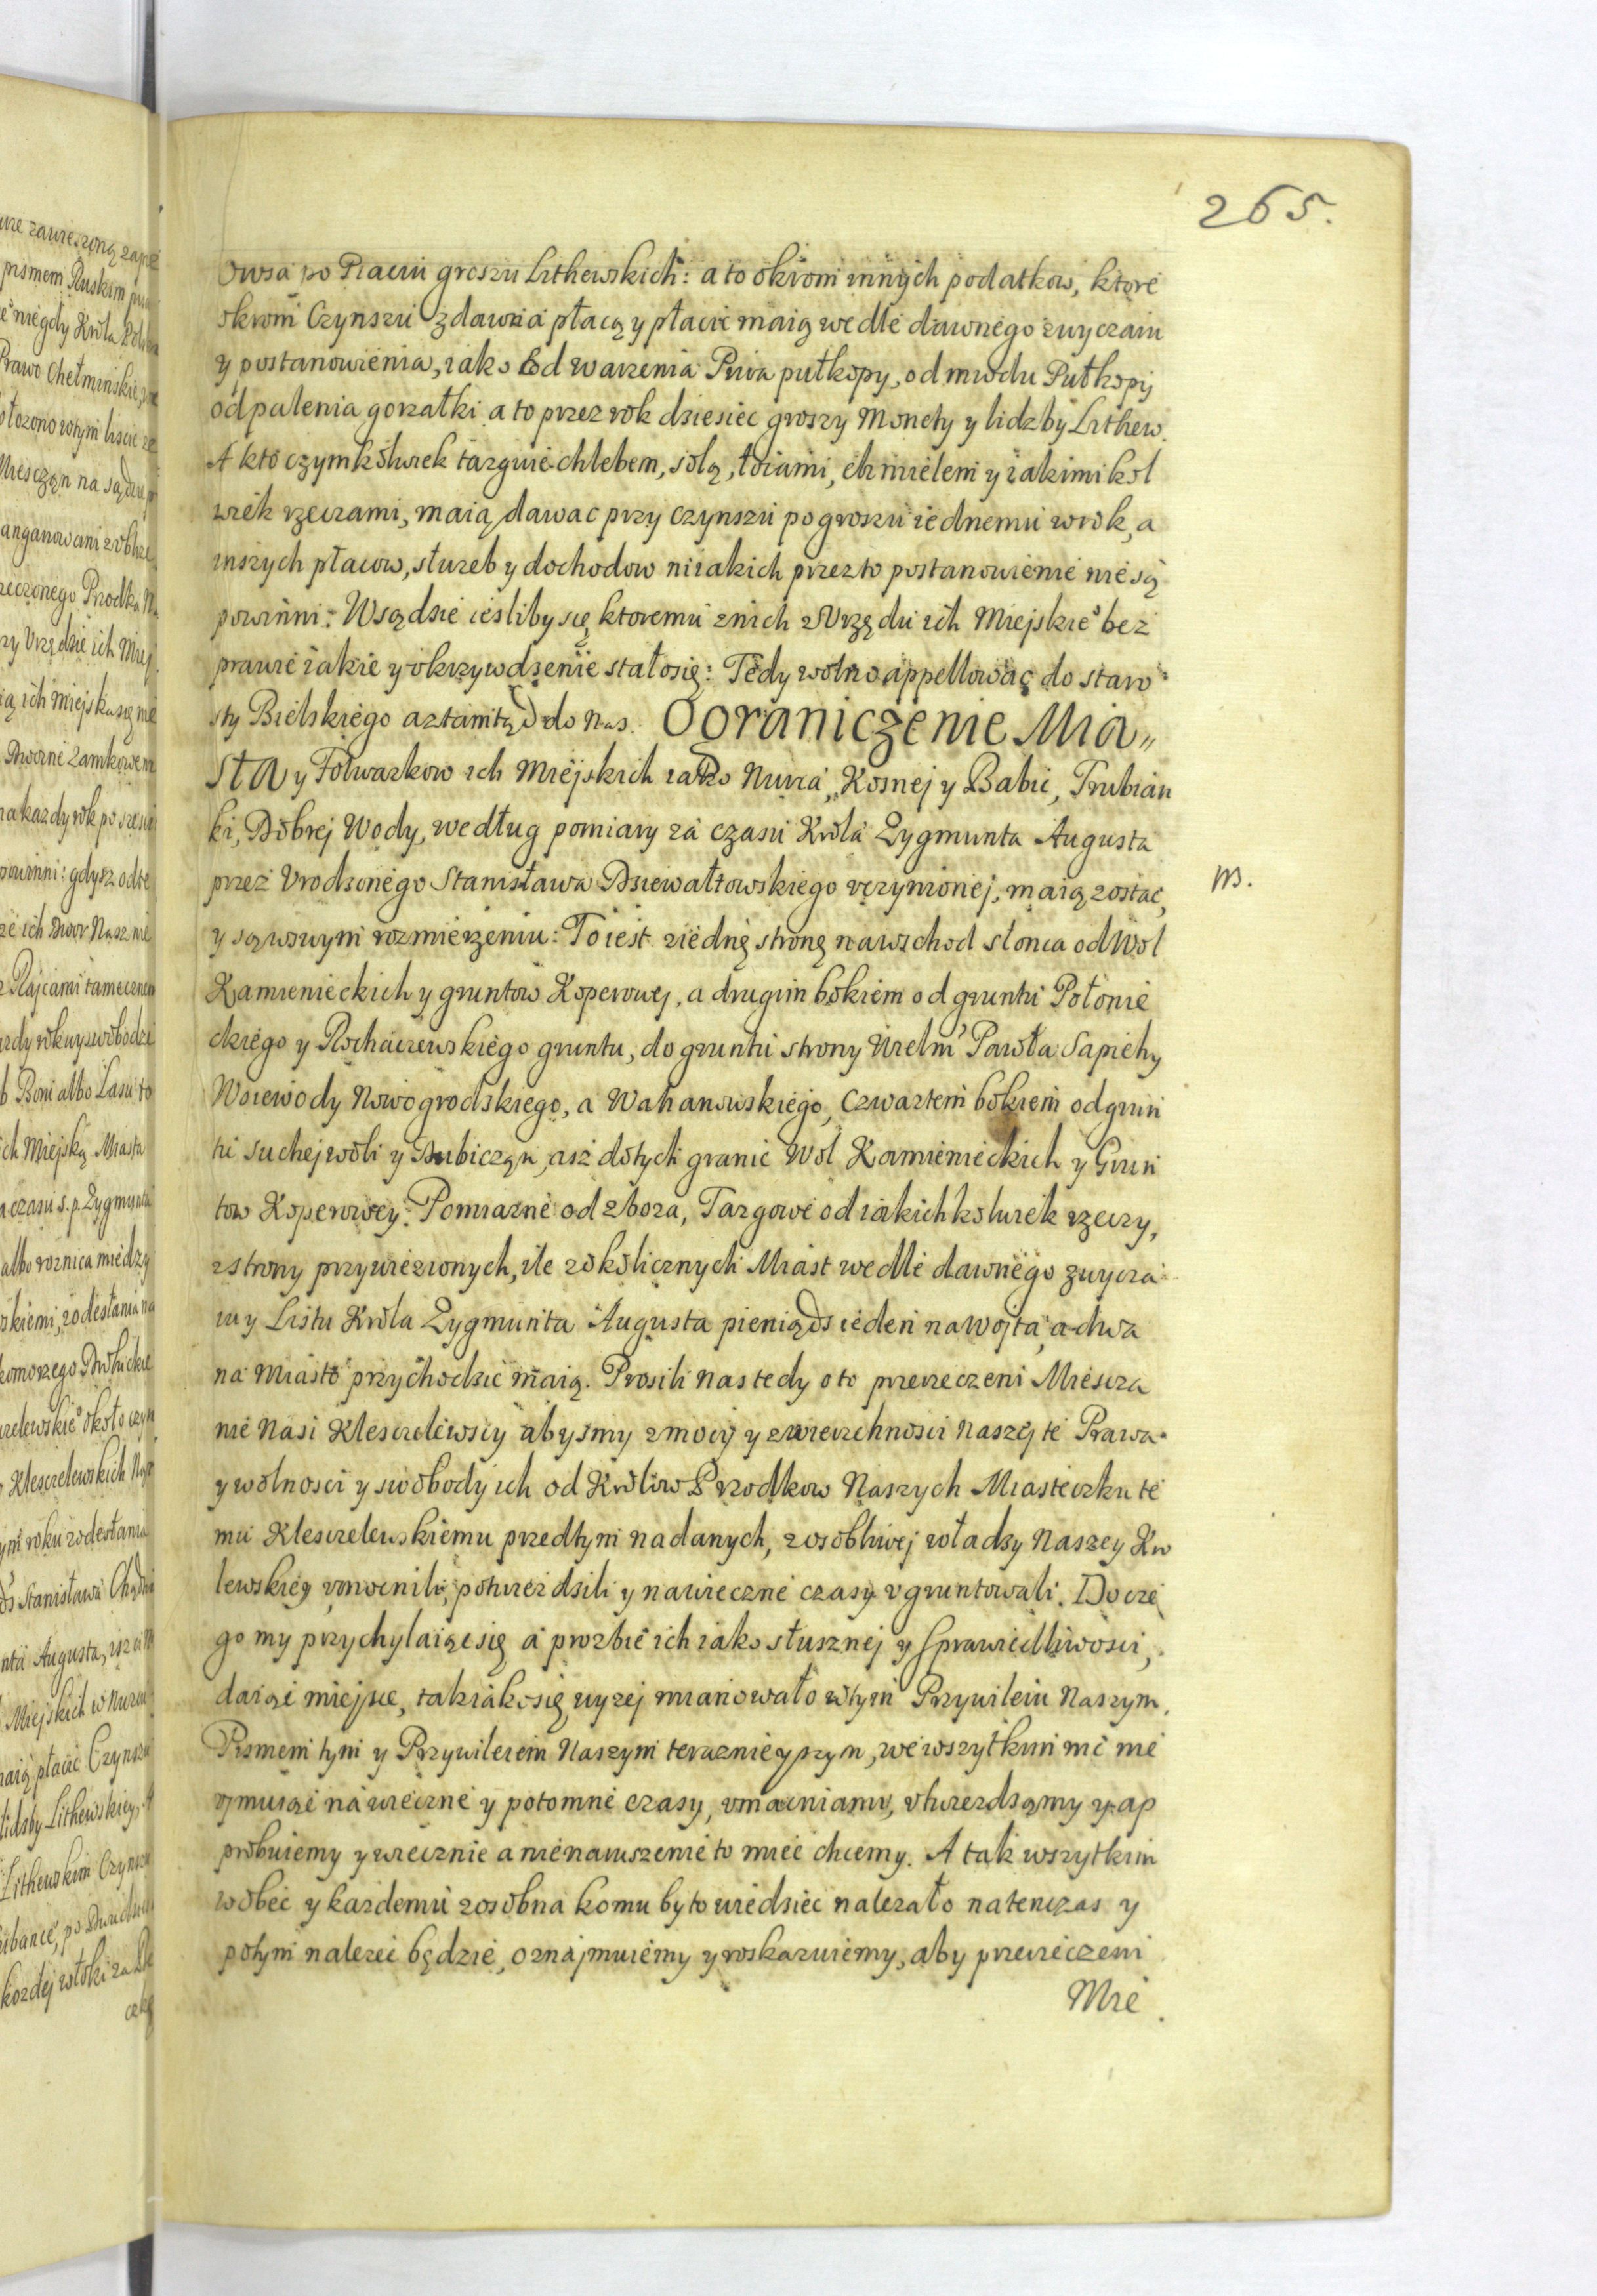 265.
owsa po Piaciu groszu Lithewskich: a to okrom innych podatkow, ktore
okrom Czynszu zdawna płacą y płacic maią wedle dawnego zwyczaiu
y postanowienia, iako od warzenia Piwa pułkopy, od miodu Pułkopy
od palenia gorzałki a to przez rok dziesiec groszy Monety y lidzby Lithew.
A kto czymkolwiek targuie chlebem, solą, łoiami, chmielem y iakimikol
wiek rzeczami, maią dawac przy czynszu po groszu iednemu w rok, a
inszych płacow, słuzeb y dochodow niiakich przez to postanowienie nie są
powinni: W sądzie iesliby się ktoremu z nich z Vrzędu ich Miejskie° bez
prawie iakie y okrzywdzenie stało się: Tedy wolno appellowac do staro
sty Bielskiego a ztamtąd do Nas. Ograniczenie Mia„
sta y Folwarkow ich Miejskich iako Nurca, Kosnej y Babic, Trubian
ki, Dobrej Wody, według pomiary za czasu Krola Zygmunta Augusta
przez Vrodzonego Stanisława Dziewałtowskiego vczynionej, maią zostac,
y są w swym rozmierzeniu: To iest z iednę stronę na wschod słonca od Wol
Kamienieckich y gruntow Koperowej, a drugim bokiem od gruntu Połonie
ckiego y Rochaczewskiego gruntu, do gruntu strony Wielm° Pawła Sapiehy
Woiewody Nowogrodskiego, a Wahanowskiego, Czwartem bokiem od grun
tu Suchej woli y Dubiczyn, asz do tych granic Wol Kamienieckich y Grun
tow Koperowey. Pomiarne od zboza, Targowe od iakichkolwiek rzeczy,
z strony przywiezionych, ile z okolicznych Miast wedle dawnego zwycza
iu y Listu Krola Zygmunta Augusta pieniądz ieden na Wojta, a dwa
na Miasto przychodzic maią. Prosili nas tedy o to przerzeczeni Miescza
nie Nasi Klesczelewscy abysmy z mocy y zwierzchnosci Naszej te Prawa
y wolnosci y swobody ich od Krolow Przodkow Naszych Miasteczku te
mu Klesczelewskiemu przedtym nadanych, z osobliwej władzy Naszey Kro
lewskiey vmocnili, potwierdzili y na wieczne czasy vgruntowali. Do cze
go my przychylaiąc się a prozbie ich iako słusznej y sprawiedliwosci,
daiąc miejsce, tak iako się wyzej mianowało w tym Przywileiu Naszym,
Pismem tym y Przywileiem Naszym teraznieyszym, we wszytkim nic nie
vjmuiąc na wieczne y potomne czasy, vmacniamy, vtwierdzamy y ap
probuiemy y wiecznie a nienaruszenie to miec chcemy. A tak wszytkim
wobec y kazdemu zosobna komu by to wiedziec nalezało na tenczas y
potym nalezec będzie, oznajmuiemy y roskazuiemy, aby przerzeczeni
Mie